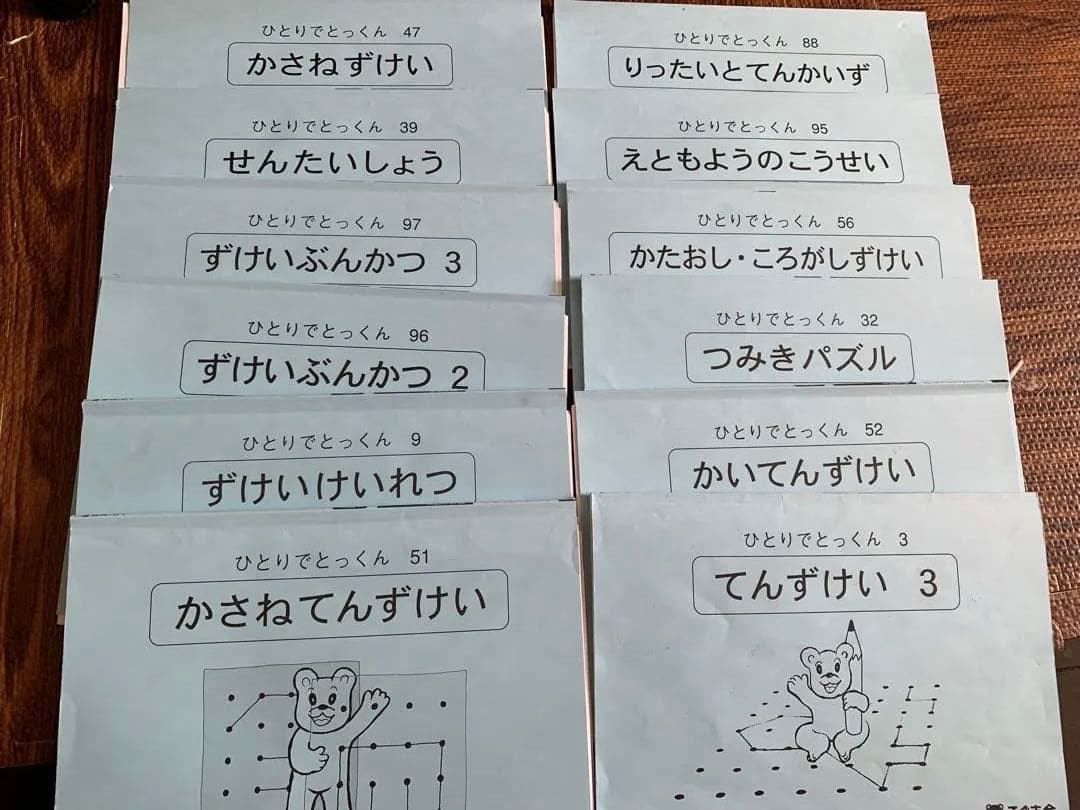 ひとりでとっくん 47
かさねずけい
ひとりでとっくん 39
せんたいしょう
ひとりでとっくん 97
ずけいぶんかつ 3
ひとりでとっくん 96
ずけいぶんかつ 2
ひとりでとっくん 9
ずけいけいれつ
ひとりでとっくん 51
かさねてんずけい
ひとりでとっくん 88
りったいとてんかいず
ひとりでとっくん 95
えともようのこうせい
ひとりでとっくん 56
かたおし・ころがしずけい
ひとりでとっくん 32
つみきパズル
ひとりでとっくん 52
かいてんずけい
ひとりでとっくん 3
てんずけい 3